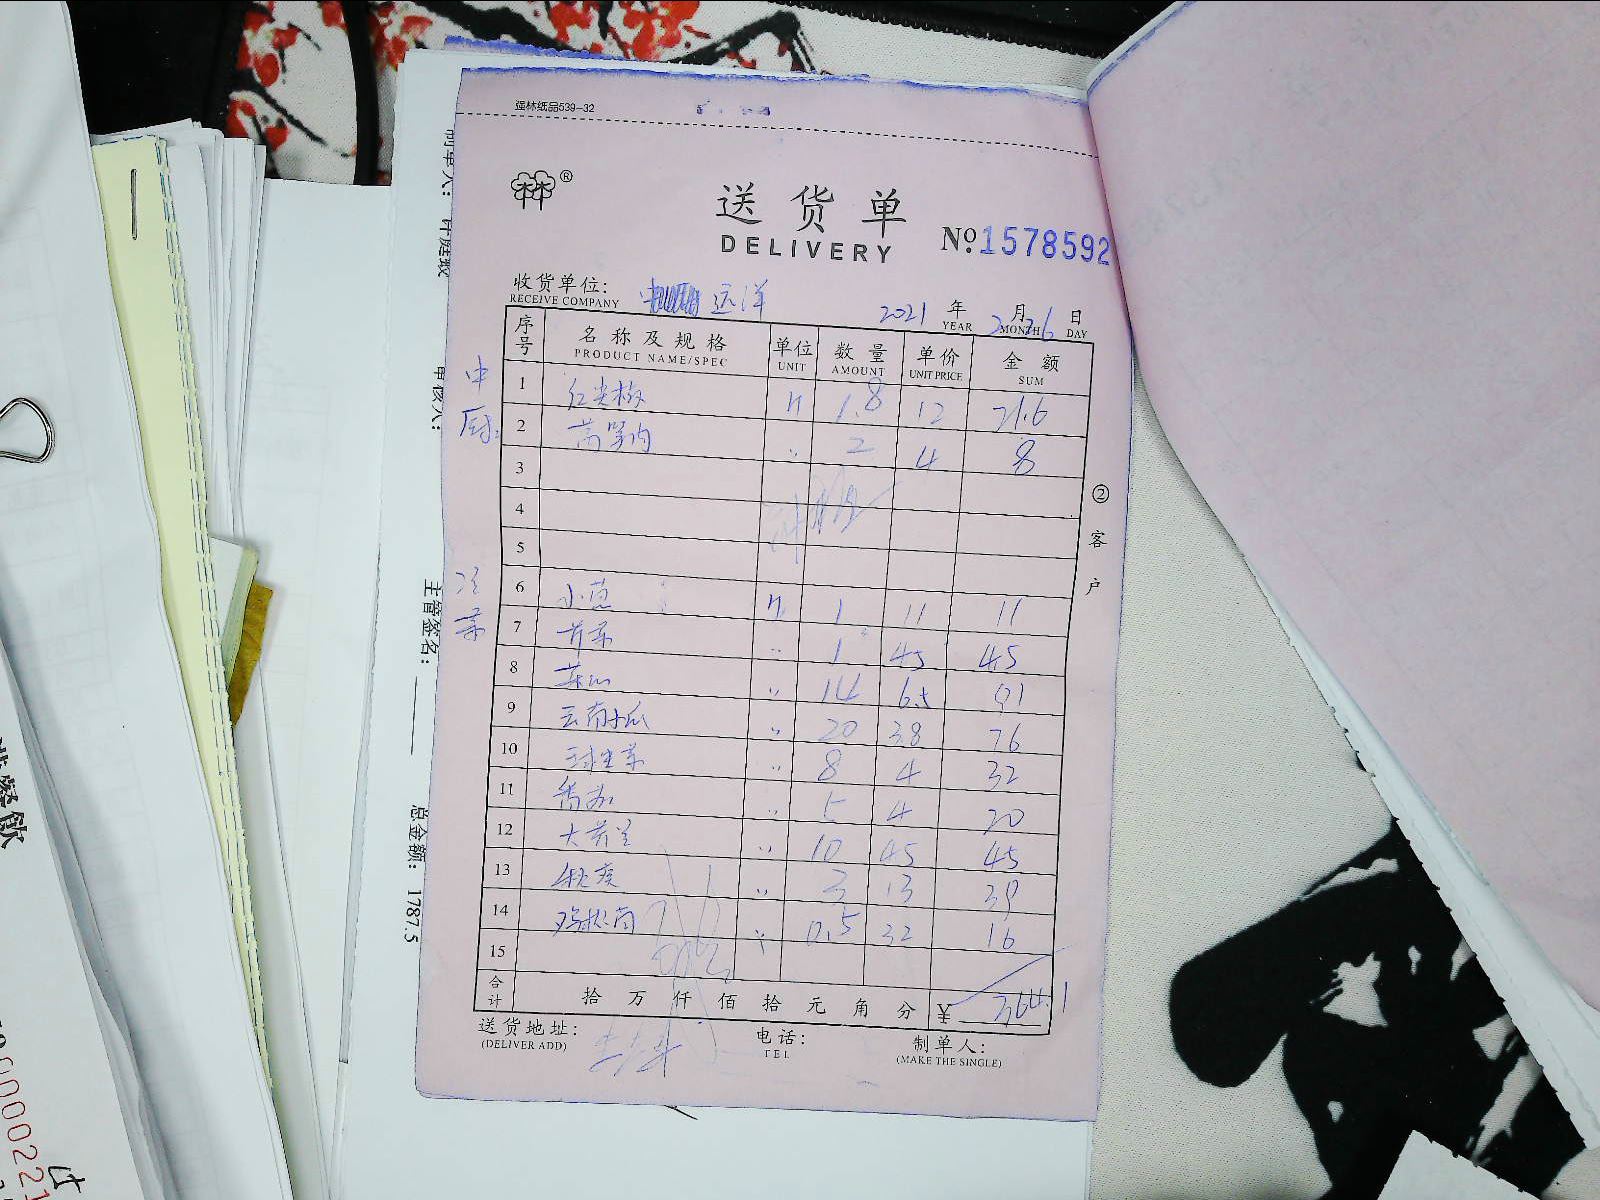 强林纸品539-32
林林®
送货单
DELIVERY
№1578592
收货单位: 远洋
RECEIVE COMPANY
2021 年 2 月 26 日
YEAR MONTH DAY
序号 名称及规格 单位 数量 单价 金额
PRODUCT NAME/SPEC UNIT AMOUNT UNIT PRICE SUM
中厨
1 红尖椒 斤 1.8 12 21.6
2 莴笋肉 〃 2 4 8
3
4
5
凉菜
6 小葱 斤 1 11 11
7 芹菜 〃 1 4.5 4.5
8 菜心 〃 14 6.5 91
9 云南小瓜 〃 20 3.8 76
10 玉球生菜 〃 8 4 32
11 番茄 〃 5 4 20
12 大黄瓜 〃 10 4.5 45
13 秋葵 〃 3 13 39
14 鸡枞菌 〃 0.5 32 16
15
合计 拾 万 仟 佰 拾 元 角 分 ¥ 364.1
送货地址:
(DELIVER ADD)
电话:
TEL
制单人:
(MAKE THE SINGLE)
②客户
制单人:
审核人:
主管签名:
总金额: 1787.5
餐飲
0000221